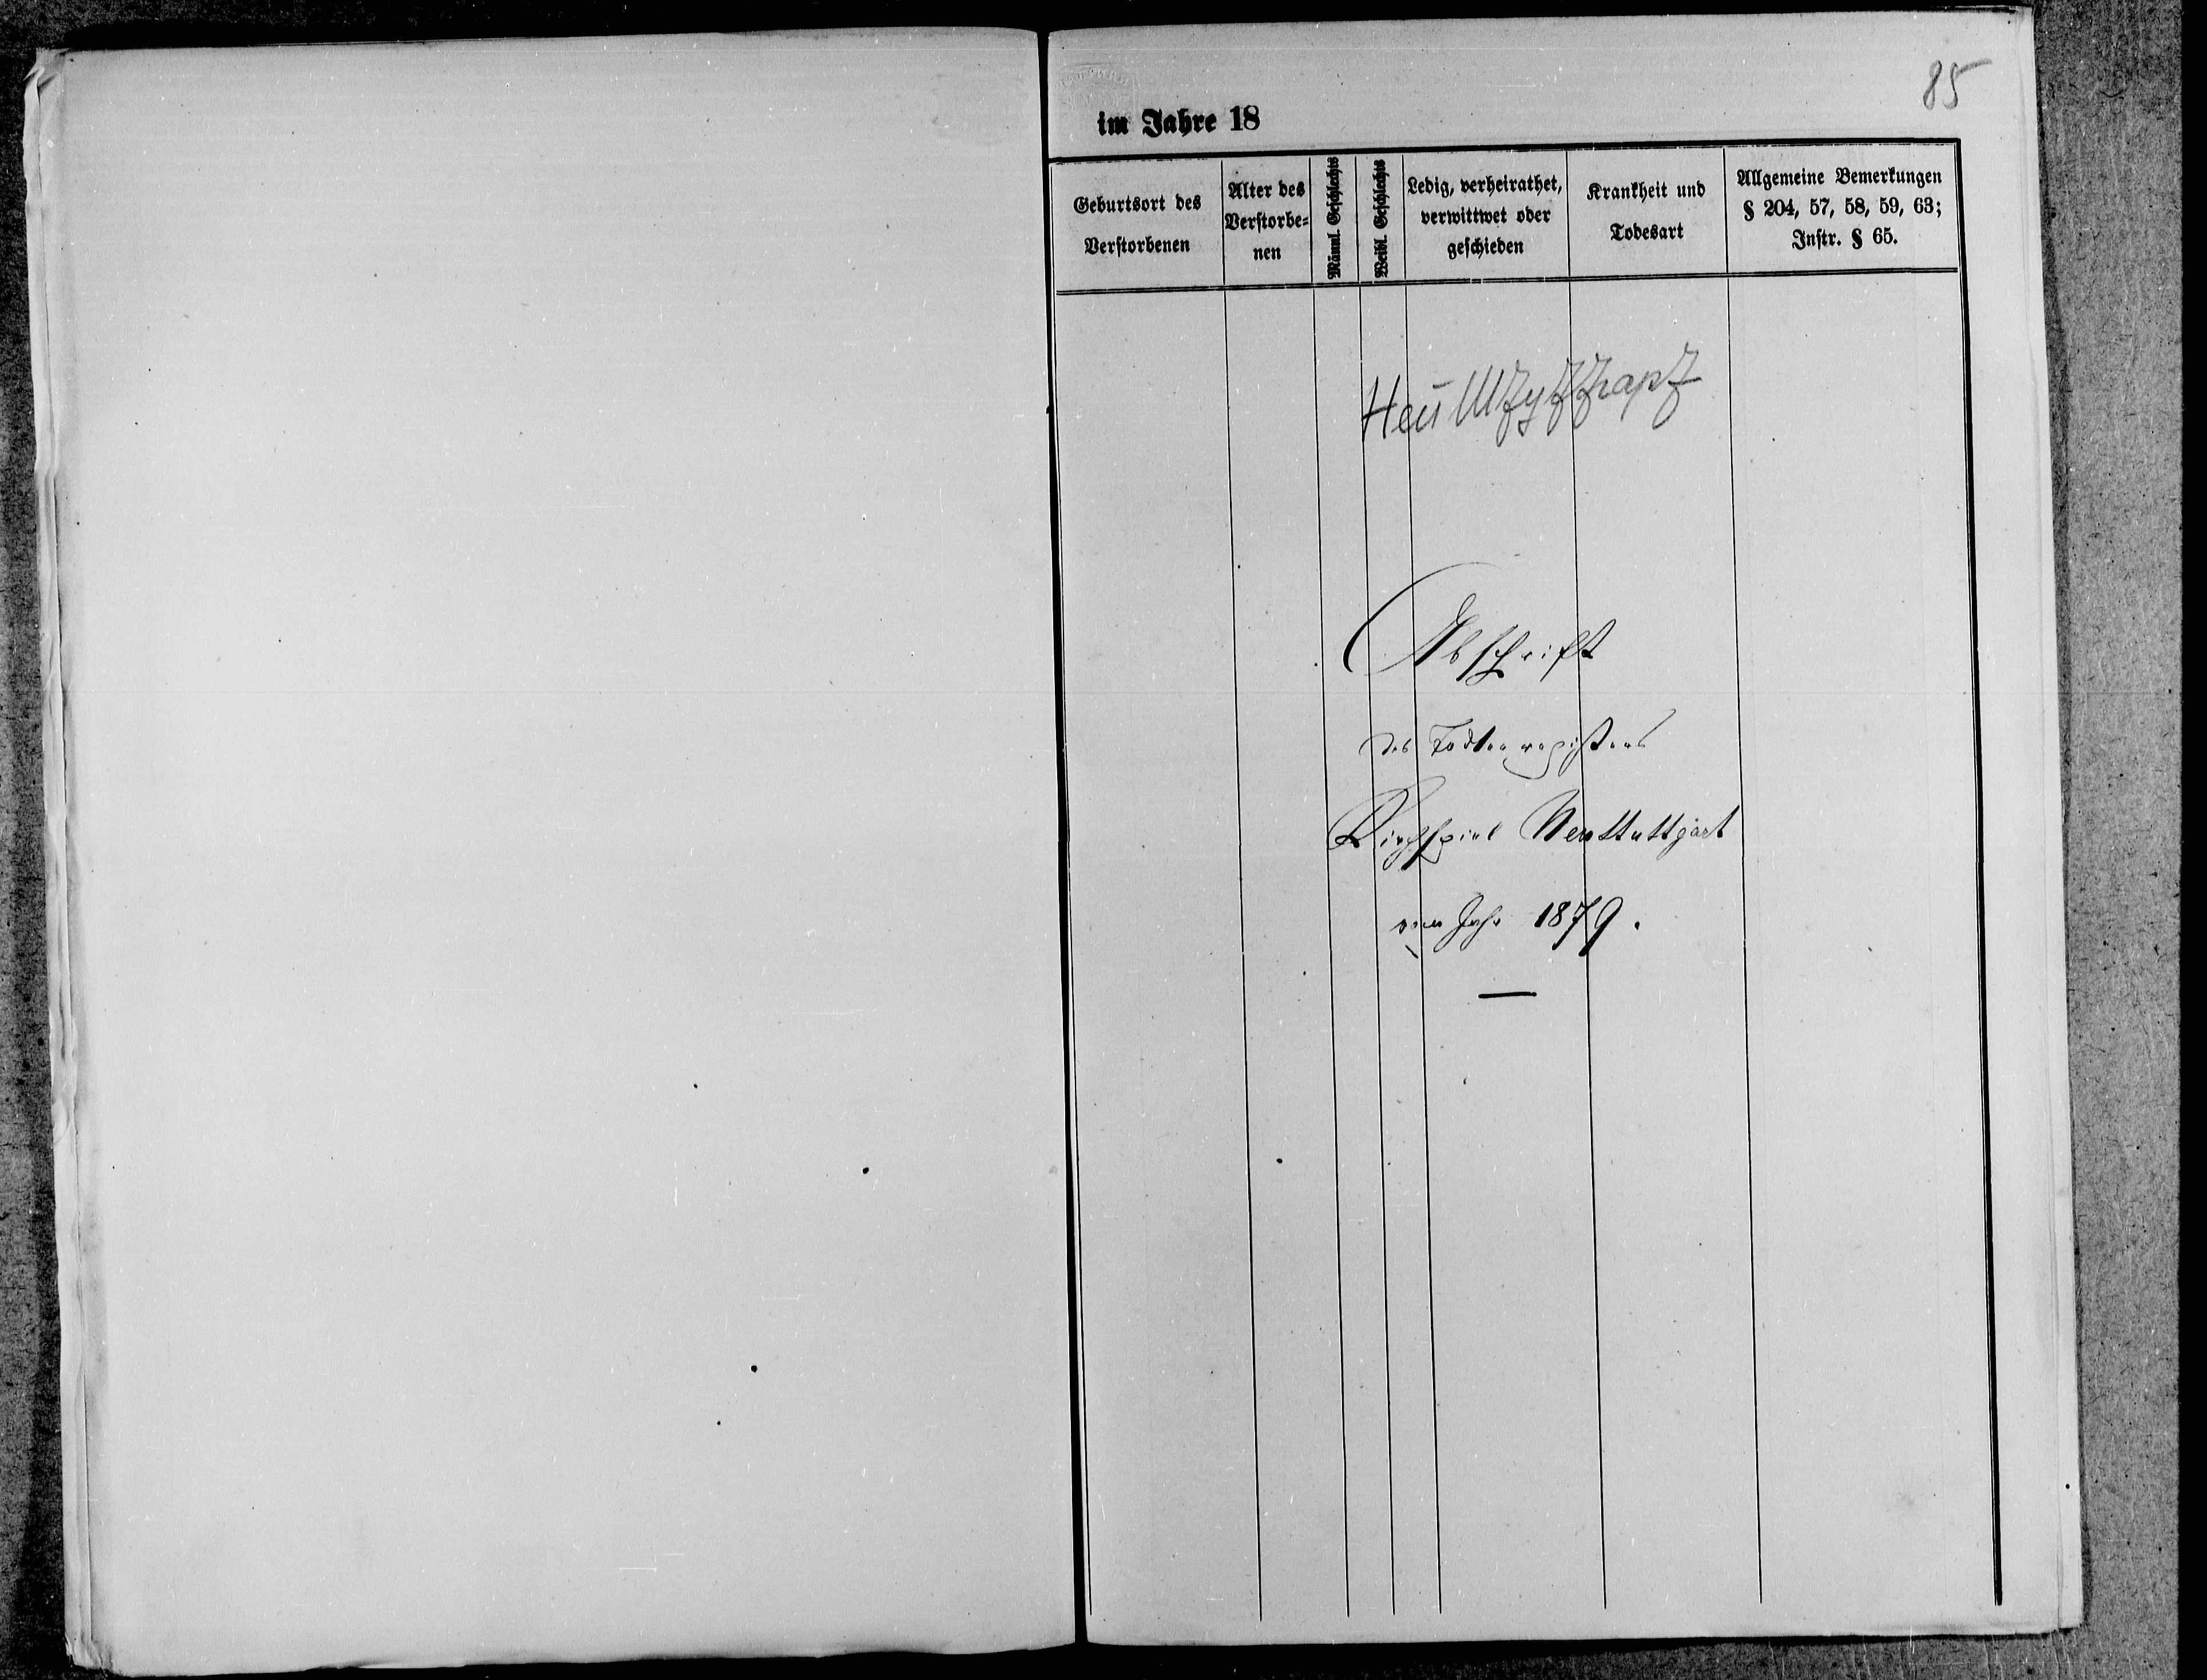 85
im Jahre 18
Geburtsort des Verstorbenen
Alter des Verstorbe=nen
Männl. Geschlechts
Weibl. Geschlechts
Ledig, verheirathet, verwittwet oder geschieden
Krankheit und Todesart
Allgemeine Bemerkungen § 204, 57, 58, 59, 63; Instr. § 65.
Abschrift
des Todtenregisters
Kirchspiel Neustuttgart
vom Jahr 1879.